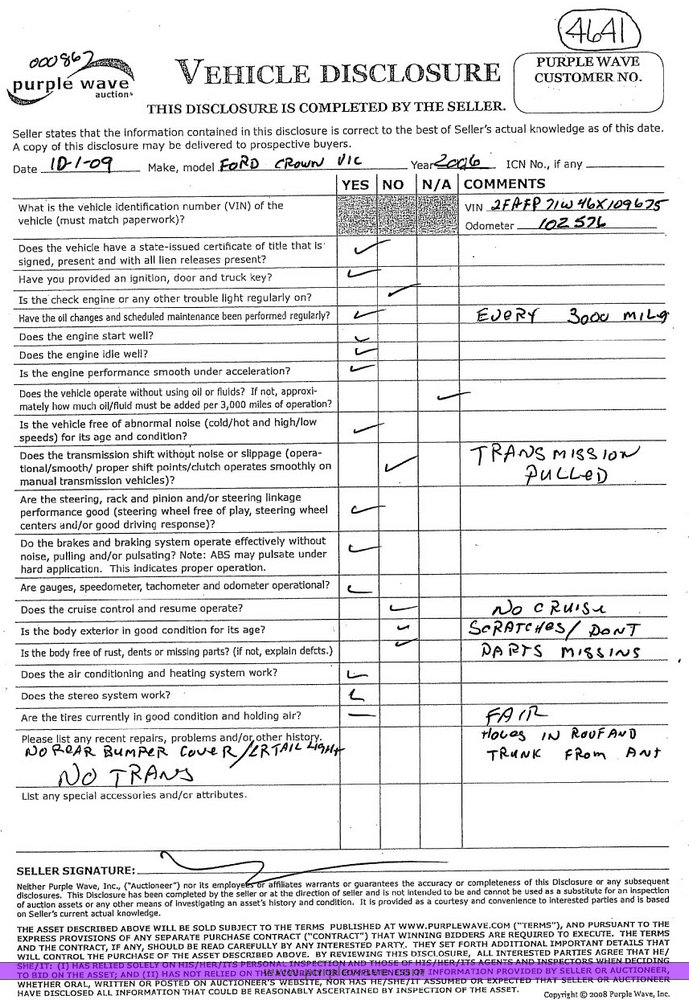 4641
000862
purple wave
auction
VEHICLE DISCLOSURE
PURPLE WAVE
CUSTOMER NO.
THIS DISCLOSURE IS COMPLETED BY THE SELLER.
Seller states that the information contained in this disclosure is correct to the best of Seller's actual knowledge as of this date.
A copy of this disclosure may be delivered to prospective buyers.
Date 10-1-09 Make, model FORD CROWN VIC Year 2006 ICN No., if any
YES NO N/A COMMENTS
What is the vehicle identification number (VIN) of the
vehicle (must match paperwork)?
VIN 2FAFP71W46X109675
Odometer 102576
Does the vehicle have a state-issued certificate of title that is
signed, present and with all lien releases present?
Have you provided an ignition, door and truck key?
Is the check engine or any other trouble light regularly on?
Have the oil changes and scheduled maintenance been performed regularly? EVERY 3000 MILES
Does the engine start well?
Does the engine idle well?
Is the engine performance smooth under acceleration?
Does the vehicle operate without using oil or fluids? If not, approxi-
mately how much oil/fluid must be added per 3,000 miles of operation?
Is the vehicle free of abnormal noise (cold/hot and high/low
speeds) for its age and condition?
Does the transmission shift without noise or slippage (opera-
tional/smooth/ proper shift points/clutch operates smoothly on
manual transmission vehicles)?
TRANSMISSION
PULLED
Are the steering, rack and pinion and/or steering linkage
performance good (steering wheel free of play, steering wheel
centers and/or good driving response)?
Do the brakes and braking system operate effectively without
noise, pulling and/or pulsating? Note: ABS may pulsate under
hard application. This indicates proper operation.
Are gauges, speedometer, tachometer and odometer operational?
Does the cruise control and resume operate? NO CRUISE
Is the body exterior in good condition for its age? SCRATCHES/ DONT
Is the body free of rust, dents or missing parts? (if not, explain defcts.) PARTS MISSING
Does the air conditioning and heating system work?
Does the stereo system work?
Are the tires currently in good condition and holding air? FAIR
Please list any recent repairs, problems and/or other history. HOLES IN ROOF AND
NO REAR BUMPER COVER / TAIL LIGHT TRUNK FROM ANT
NO TRANS
List any special accessories and/or attributes.
SELLER SIGNATURE:
Neither Purple Wave, Inc., ("Auctioneer") nor its employees or affiliates warrants or guarantees the accuracy or completeness of this Disclosure or any subsequent
disclosures. This Disclosure has been completed by the seller or at the direction of seller and is not intended to be and cannot be used as a substitute for an inspection
of auction assets or any other means of investigating an asset's history and condition. It is provided as a courtesy and convenience to interested parties and is based
on Seller's current actual knowledge.
THE ASSET DESCRIBED ABOVE WILL BE SOLD SUBJECT TO THE TERMS PUBLISHED AT WWW.PURPLEWAVE.COM ("TERMS"), AND PURSUANT TO THE
EXPRESS PROVISIONS OF ANY SEPARATE PURCHASE CONTRACT ("CONTRACT") THAT WINNING BIDDERS ARE REQUIRED TO EXECUTE. THE TERMS
AND THE CONTRACT, IF ANY, SHOULD BE READ CAREFULLY BY ANY INTERESTED PARTY. THEY SET FORTH ADDITIONAL IMPORTANT DETAILS THAT
WILL CONTROL THE PURCHASE OF THE ASSET DESCRIBED ABOVE. BY REVIEWING THIS DISCLOSURE, ALL INTERESTED PARTIES AGREE THAT HE/
SHE/IT: (I) HAS RELIED SOLELY ON HIS/HER/ITS PERSONAL INSPECTION AND THOSE OF HIS/HER/ITS AGENTS AND INSPECTORS WHEN DECIDING
TO BID ON THE ASSET; AND (II) HAS NOT RELIED ON THE INFORMATION PROVIDED BY SELLER OR AUCTIONEER,
WHETHER ORAL, WRITTEN OR POSTED ON AUCTIONEER'S WEBSITE, NOR HAS HE/SHE/IT ASSUMED OR EXPECTED THAT SELLER OR AUCTIONEER
HAVE DISCLOSED ALL INFORMATION THAT COULD BE REASONABLY ASCERTAINED BY INSPECTION OF THE ASSET.
Copyright © 2008 Purple Wave, Inc.